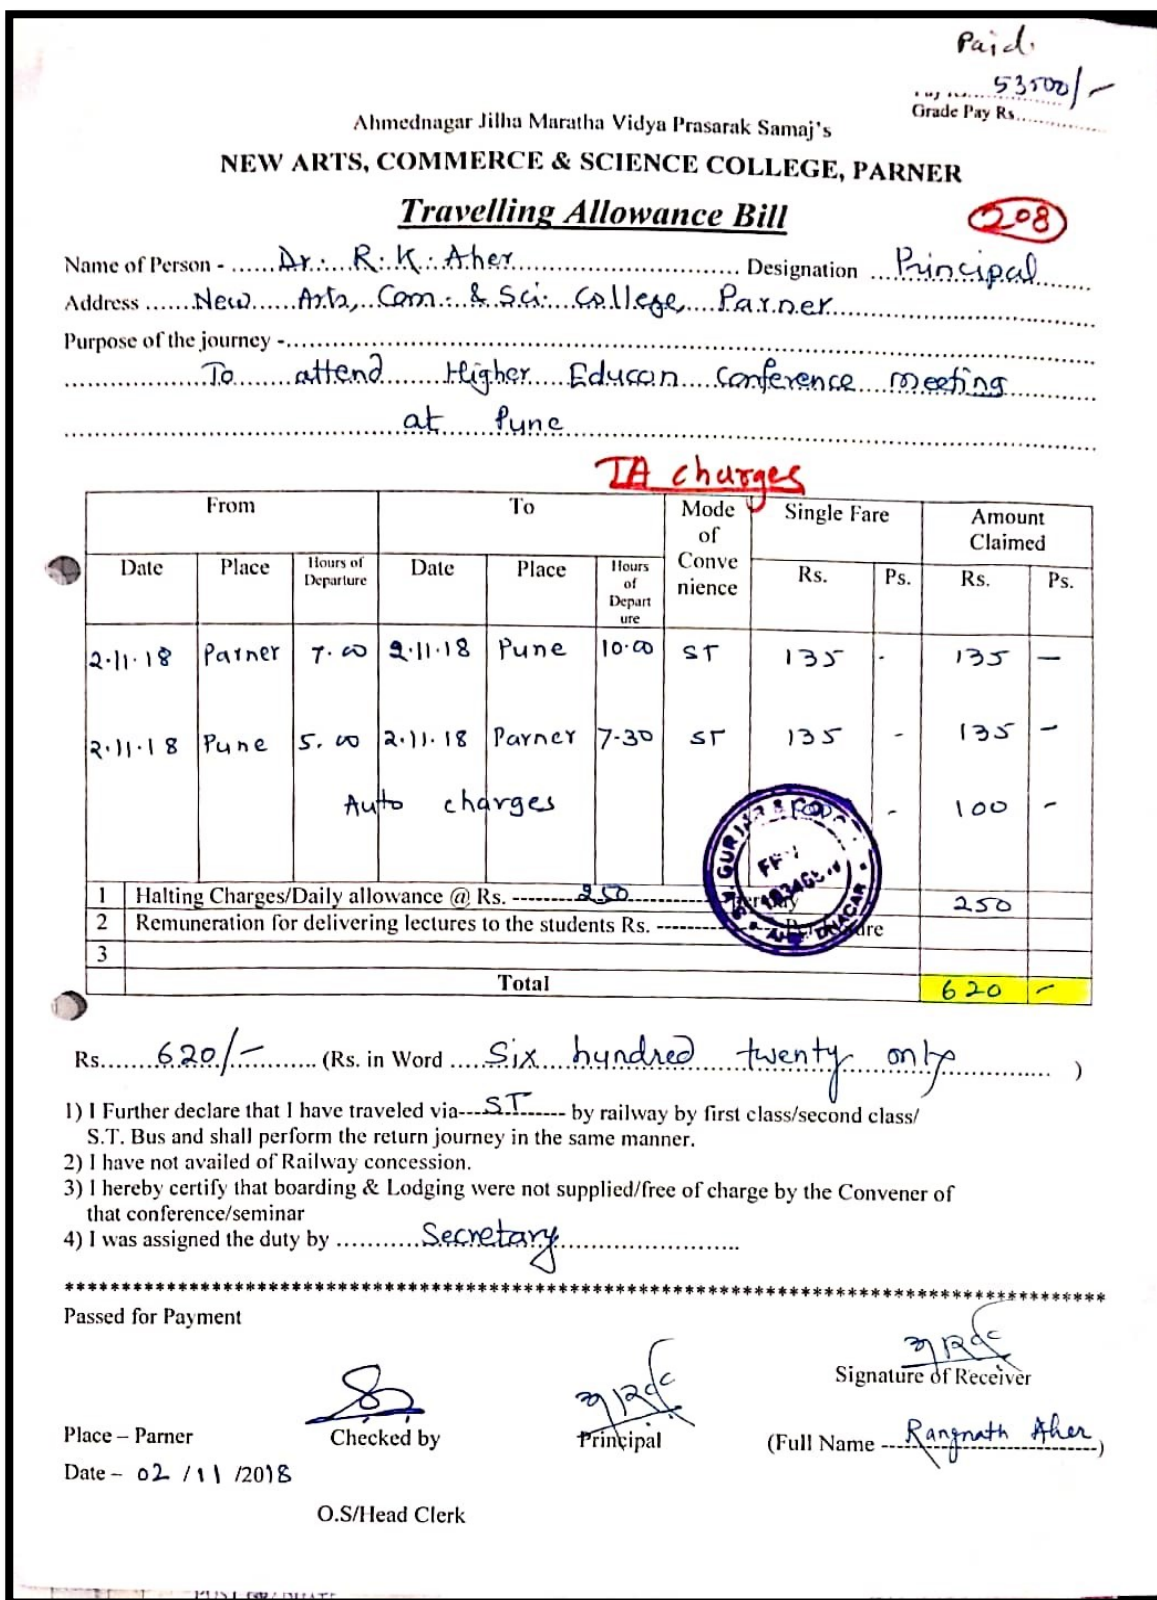 Paid.
53500/-
Grade Pay Rs..............
Ahmednagar Jilha Maratha Vidya Prasarak Samaj's
NEW ARTS, COMMERCE & SCIENCE COLLEGE, PARNER
Travelling Allowance Bill
208
Name of Person - ...... Dr. R. K. Aher .......... Designation ... Principal ......
Address ...... New Arts, Com. & Sci. College, Parner ......
Purpose of the journey -......
To attend Higher Educan Conference meeting
at Pune
TA charges
From To Mode of Conve nience Single Fare Amount Claimed
Date Place Hours of Departure Date Place Hours of Depart ure Rs. Ps. Rs. Ps.
2.11.18 Parner 7.00 2.11.18 Pune 10.00 ST 135 - 135 -
2.11.18 Pune 5.00 2.11.18 Parner 7-30 ST 135 - 135 -
Auto charges - 100 -
1 Halting Charges/Daily allowance @ Rs. -------- 250 -------- 250
2 Remuneration for delivering lectures to the students Rs. --------
3
Total 620 -
Rs...... 620/- ...... (Rs. in Word ..... Six hundred twenty only ...... )
1) I Further declare that I have traveled via--- ST ------ by railway by first class/second class/
S.T. Bus and shall perform the return journey in the same manner.
2) I have not availed of Railway concession.
3) I hereby certify that boarding & Lodging were not supplied/free of charge by the Convener of
that conference/seminar
4) I was assigned the duty by ........... Secretary ...........
Passed for Payment
Signature of Receiver
Place – Parner Checked by Principal (Full Name --- Rangnath Aher ---)
Date – 02 /11 /2018
O.S/Head Clerk